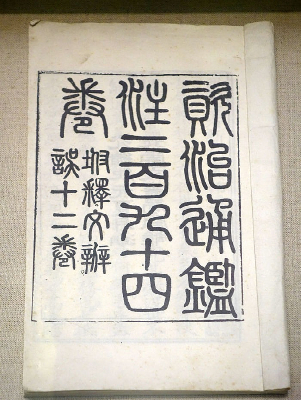 資治通鑑
注二百九十四
卷
坿釋文辦
誤十二卷